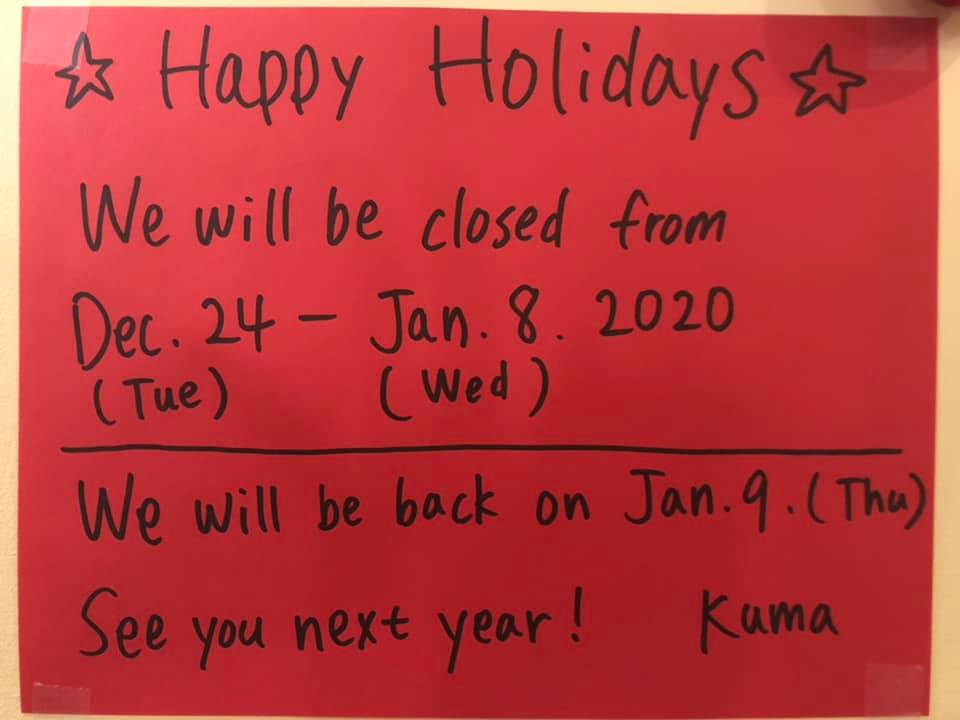 ☆ Happy Holidays ☆
We will be closed from
Dec. 24 – Jan. 8. 2020
(Tue) (Wed)
We will be back on Jan. 9. (Thu)
See you next year! Kuma